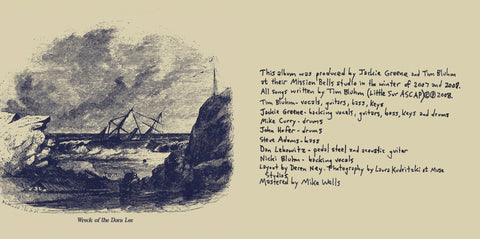 This album was produced by Jackie Greene and Tim Bluhm
at their Mission Bells studio in the winter of 2007 and 2008.
All songs written by Tim Bluhm (Little Sur ASCAP)©℗2008.
Tim Bluhm-vocals, guitars, bass, keys
Jackie Greene-backing vocals, guitars, bass, keys and drums
Mike Curry-drums
John Hofer-drums
Steve Adams-bass
Dan Lebowitz-pedal steel and acoustic guitar
Nicki Bluhm-backing vocals
Layout by Deren Ney. Photography by Laura Kudritzki at Muse
Studios
Mastered by Mike Wells
Wreck of the Dora Lee